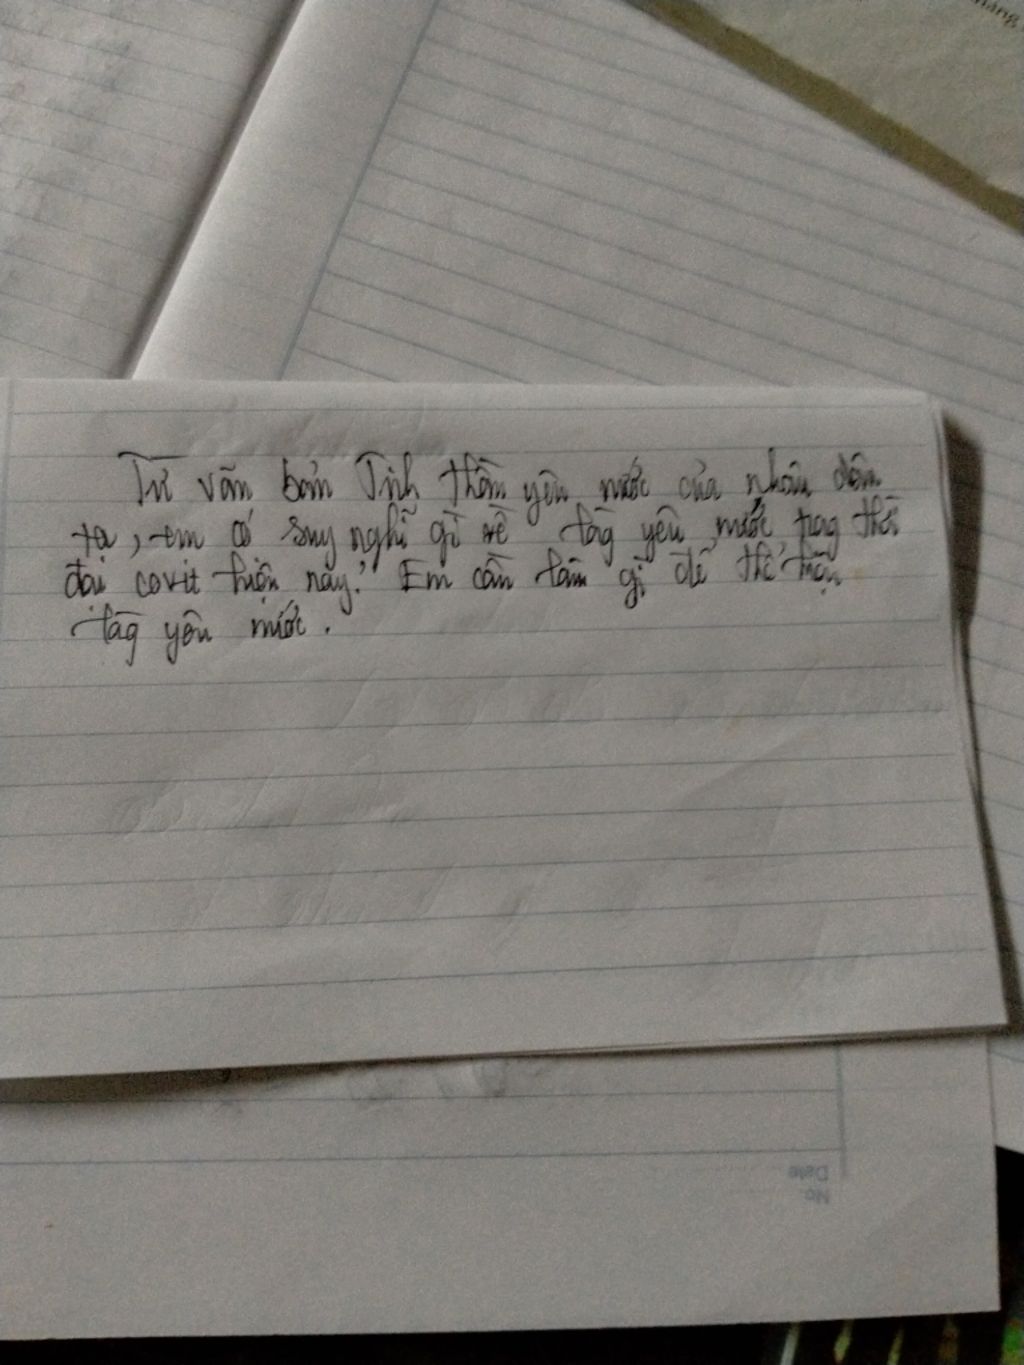 Từ văn bản Tinh thần yêu nước của nhân dân
ta, em có suy nghĩ gì về lòg yêu nước trog thời
đại covit hiện nay? Em cần làm gì để thể hiện
lòg yêu nước.
No.
Date